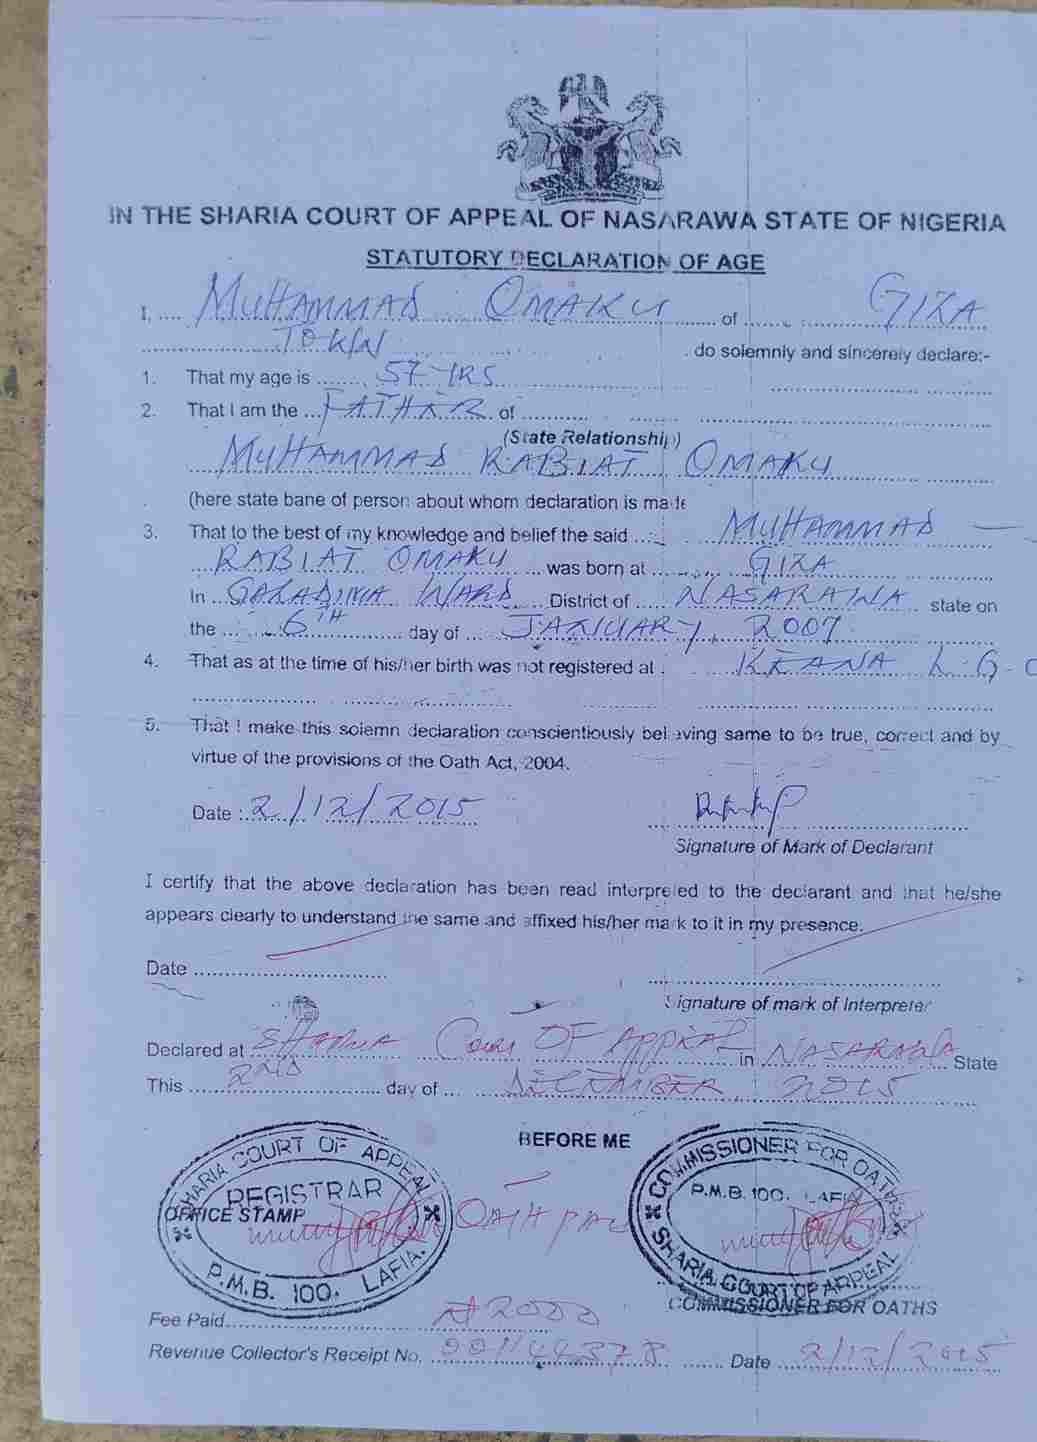 IN THE SHARIA COURT OF APPEAL OF NASARAWA STATE OF NIGERIA
STATUTORY DECLARATION OF AGE
I, .... MUHAMMAD OMAKU ........ of ........ GIZA
........ TOWN ........ do solemnly and sincerely declare:-
1. That my age is ........ 57 YRS ........
2. That I am the ... FATHER of ........
(State Relationship)
MUHAMMAD RABIAT OMAKU
(here state bane of person about whom declaration is made
3. That to the best of my knowledge and belief the said ..... MUHAMMAD —
RABIAT OMAKU ... was born at ........ GIZA
In ... GALADIMA WARD ... District of ..... NASARAWA state on
the ........ 6TH ........ day of ..... JANUARY, 2007
4. That as at the time of his/her birth was not registered at . KEANA L.G.C
5. That I make this solemn declaration conscientiously believing same to be true, correct and by
virtue of the provisions of the Oath Act, 2004.
Date : 2/12/2015
Signature of Mark of Declarant
I certify that the above declaration has been read interpreted to the declarant and that he/she
appears clearly to understand the same and affixed his/her mark to it in my presence.
Date ........
Signature of mark of Interpreter
Declared at SHARIA Court OF APPEAL in NASARAWA State
This ..... 2ND ........ day of ... DECEMBER, 2015
BEFORE ME
SHARIA COURT OF APPEAL
REGISTRAR
OFFICE STAMP
P.M.B. 100. LAFIA.
OATH
COMMISSIONER FOR OATHS
P.M.B. 100. LAFIA
SHARIA COURT OF APPEAL
COMMISSIONER FOR OATHS
Fee Paid ........ ₦2000
Revenue Collector's Receipt No. ........ Date ... 2/12/2015